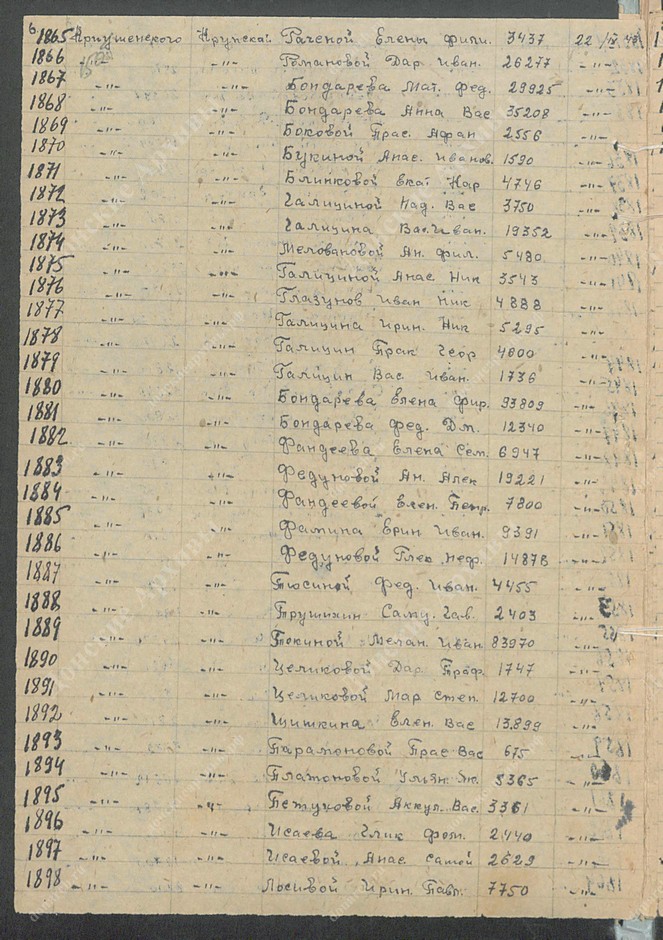 1865 Криушенского Крупская Гаченой Елены фили. 3437 22/IV 42
1866 -"- -"- Романовой Дар Иван. 26277 -"-
1867 -"- -"- Бондарева Мат. Фед. 29925 -"-
1868 -"- -"- Бондарева Анна Вас 35208 -"-
1869 -"- -"- Боковой Прас. Афан 2556 -"-
1870 -"- -"- Букиной Анас. Иванов. 1590 -"-
1871 -"- -"- Блинковой Екат Нар 4746 -"-
1872 -"- -"- Галициной Над. Вас 3750 -"-
1873 -"- -"- Галицина Вас. Иван. 19352 -"-
1874 -"- -"- Меловановой Ан. Фил. 5480 -"-
1875 -"- -"- Галициной Анас. Ник 3543 -"-
1876 -"- -"- Глазунов Иван Ник 4888 -"-
1877 -"- -"- Галицина Ирин. Ник 5295 -"-
1878 -"- -"- Галицин Прак Геор 4800 -"-
1879 -"- -"- Галицин Вас. Иван. 1736 -"-
1880 -"- -"- Бондарева Елена Фир. 93809 -"-
1881 -"- -"- Бондарева Фед. Дм. 12340 -"-
1882 -"- -"- Фандеева Елена Сем. 6947 -"-
1883 -"- -"- Федуковой Ан. Алек 19221 -"-
1884 -"- -"- Фандеевой Елен. Петр. 7800 -"-
1885 -"- -"- Фатина Ерин Иван. 9391 -"-
1886 -"- -"- Федуковой Неф. 14878 -"-
1887 -"- -"- Тюсиной Фед. Иван. 4455 -"-
1888 -"- -"- Трушихин Саму. Сав. 2403 -"-
1889 -"- -"- Токиной Мелан. Иван 83970 -"-
1890 -"- -"- Целиковой Дар Троф. 1747 -"-
1891 -"- -"- Целиковой Мар Степ. 12700 -"-
1892 -"- -"- Шишкина Елен. Вас 13899 -"-
1893 -"- -"- Парамоновой Прас Вас 675 -"-
1894 -"- -"- Платоновой Ульян. 5365 -"-
1895 -"- -"- Петуховой Аккул. Вас. 3361 -"-
1896 -"- -"- Исаева Глик Фом. 2440 -"-
1897 -"- -"- Исаевой Анас Самой 2629 -"-
1898 -"- -"- Лосивой Ирин. Павл. 7750 -"-